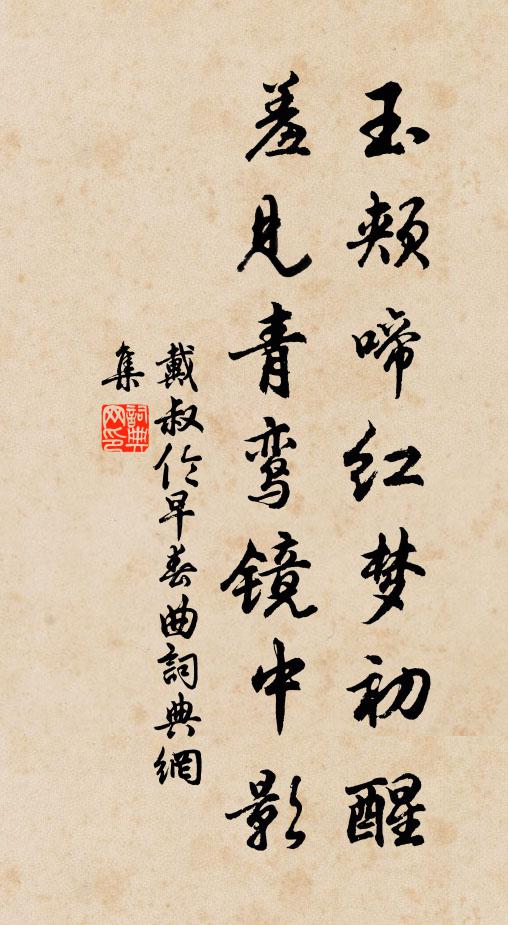 玉颊啼红梦初醒
羞见青鸾镜中影
戴叔伦早春曲詞典網
集
詞典网印